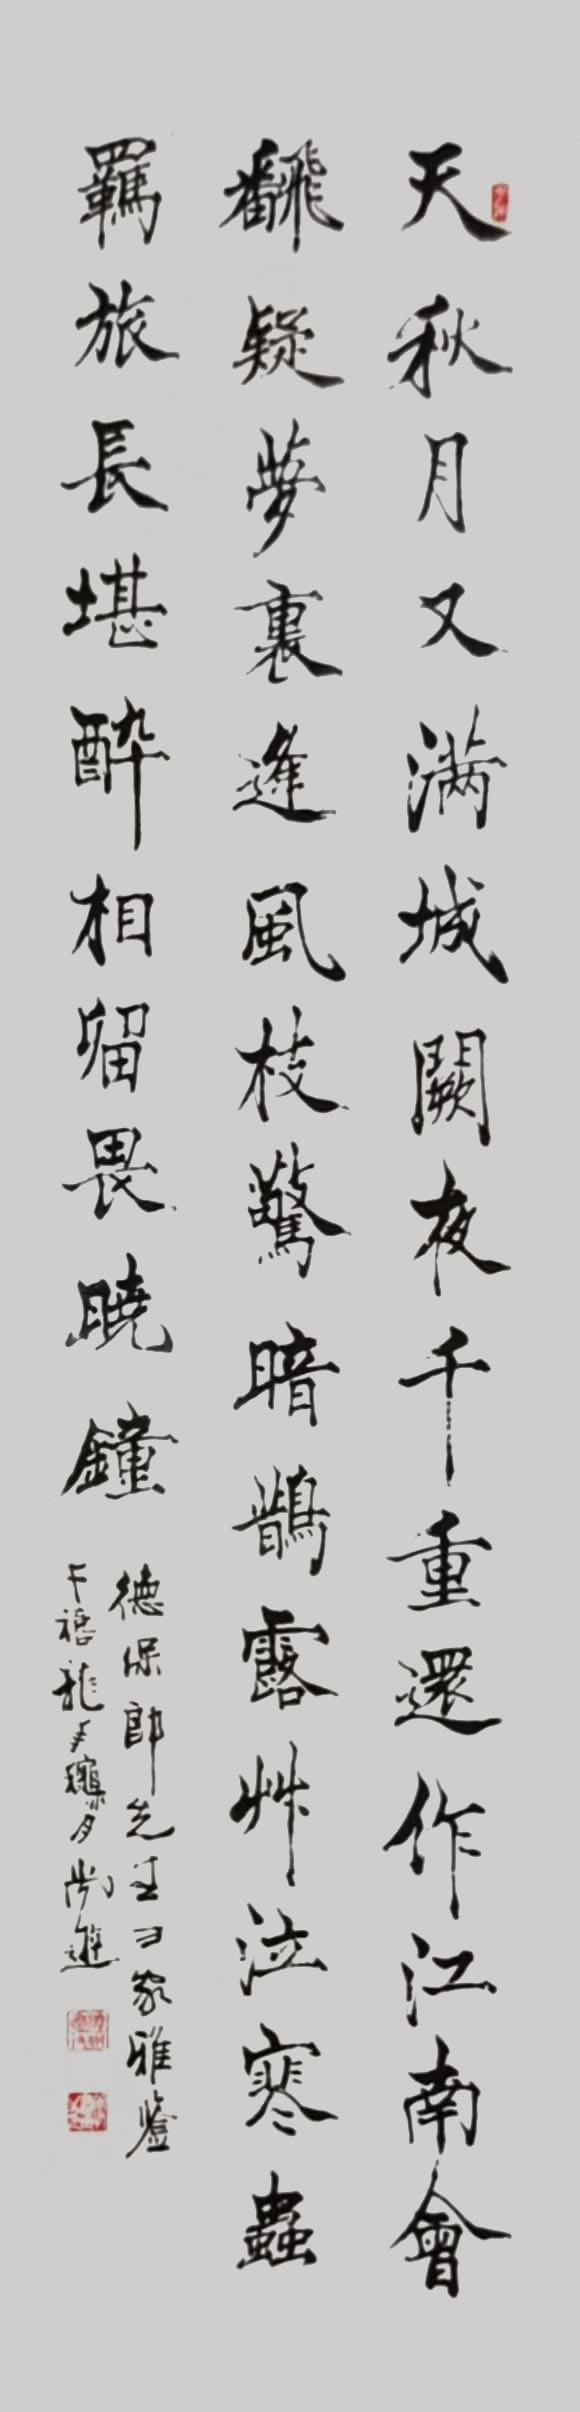 天秋月又滿城闕夜千重還作江南會
翻疑夢裏逢風枝驚暗鵲露艸泣寒蟲
羈旅長堪醉相留畏曉鐘
德保郎先生方家雅鑒
千禧龍年穐月尚遊